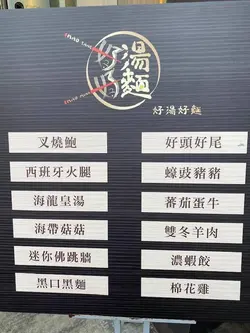 好湯
好麵
好湯好麵
叉燒鮑
好頭好尾
西班牙火腿
蠔豉豬豬
海龍皇湯
蕃茄蛋牛
海帶菇菇
雙冬羊肉
迷你佛跳牆
濃蝦餃
黑口黑麵
棉花雞